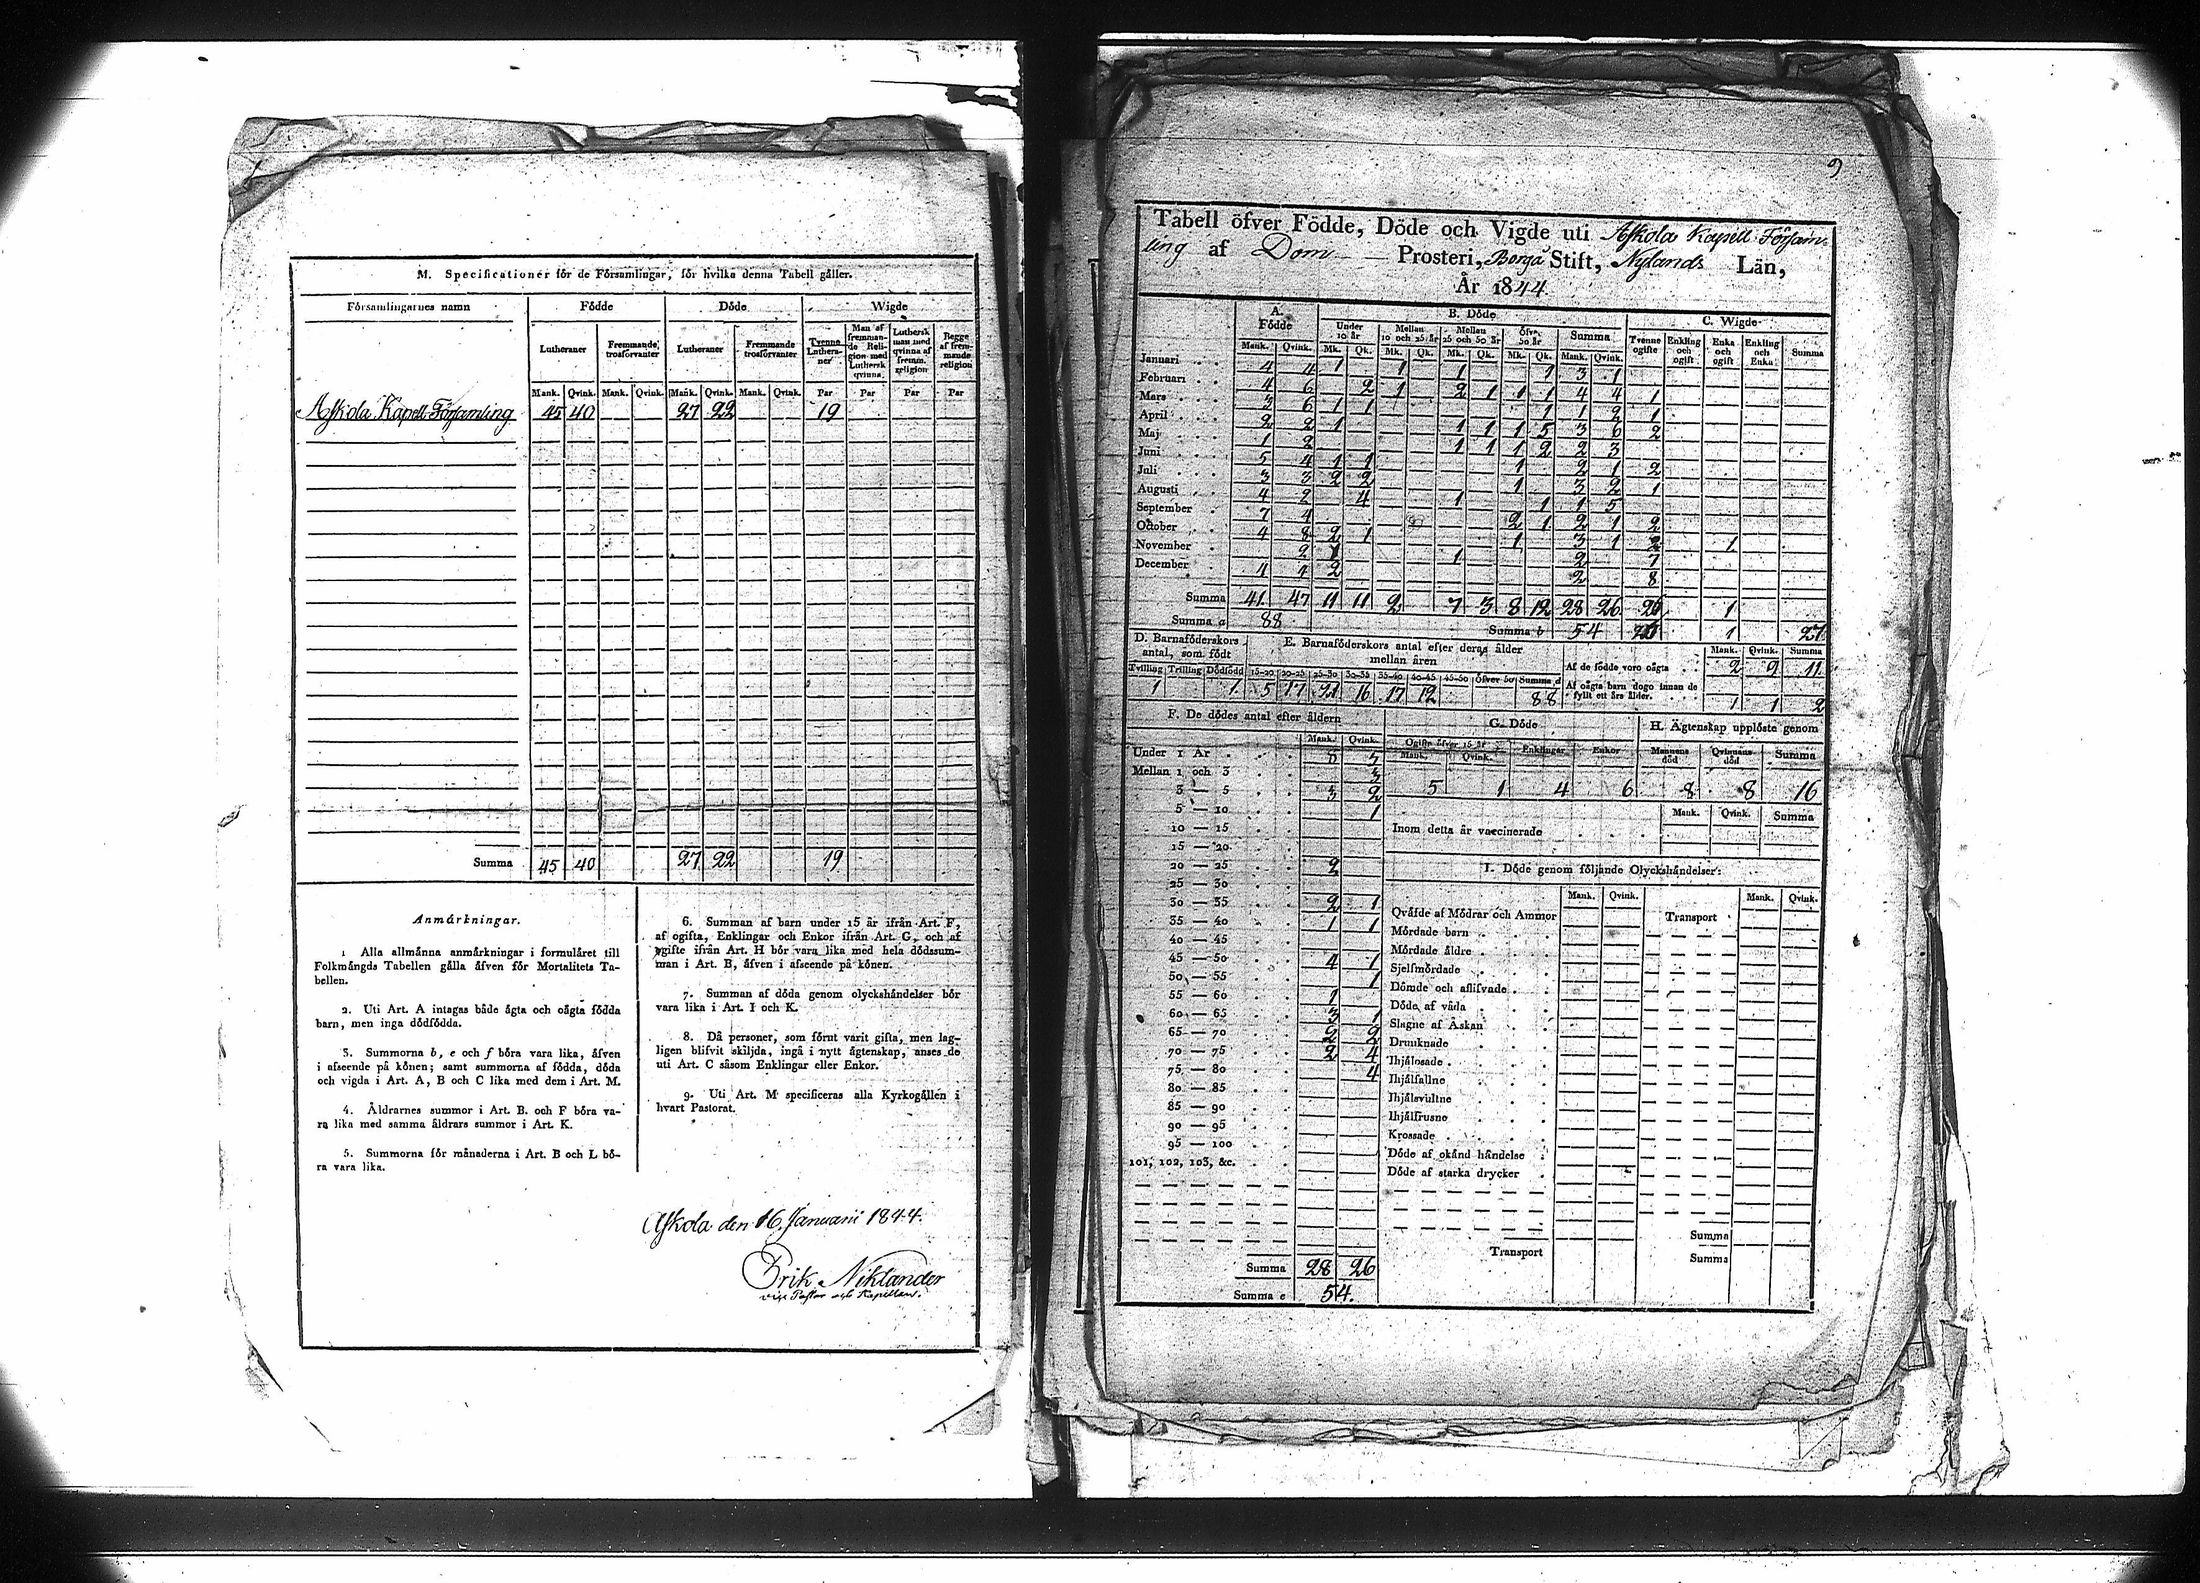 M. Specificationer för de Församlingar, för hvilka denna Tabell gäller.
Församlingarnes namn Födde Döde Wigde
Lutheraner Fremmande trosförvanter Lutheraner Fremmande trosförvanter Tvenne Lutheraner Man af fremmande Religion med Luthersk qvinna Luthersk man med qvinna af fremm. religion Begge af fremmande religion
Mank. Qvink. Mank. Qvink. Mank. Qvink. Mank. Qvink. Par Par Par Par
Askola Kapell Församling 45 40 27 22 19
Summa 45 40 27 22 19
Anmärkningar.
1 Alla allmänna anmärkningar i formuläret till
Folkmängds Tabellen gälla äfven för Mortalitets Ta-
bellen.
2. Uti Art. A intagas både ägta och oägta födda
barn, men inga dödfödda.
3. Summorna b, e och f böra vara lika, äfven
i afseende på könen; samt summorna af födda, döda
och vigda i Art. A, B och C lika med dem i Art. M.
4. Åldrarnes summor i Art. B. och F böra va-
ra lika med samma åldrars summor i Art. K.
5. Summorna för månaderna i Art. B och L bö-
ra vara lika.
6. Summan af barn under 15 år ifrån Art. F,
af ogifta, Enklingar och Enkor ifrån Art. G, och af
gifte ifrån Art. H bör vara lika med hela dödssum-
man i Art. B, äfven i afseende på könen.
7. Summan af döda genom olyckshändelser bör
vara lika i Art. I och K.
8. Då personer, som förut varit gifta, men lag-
ligen blifvit skiljda, ingå i nytt ägtenskap, anses de
uti Art. C såsom Enklingar eller Enkor.
9. Uti Art. M specificeras alla Kyrkogällen i
hvart Pastorat.
Askola den 16 Januarii 1844.
Erik Niklander
vice Pastor och Kapellan.
9
Tabell öfver Födde, Döde och Vigde uti Askola Kapell Försam-
ling af Dom Prosteri, Borgå Stift, Nylands Län,
År 1844
A. Födde B. Döde C. Wigde
Under 10 år Mellan 10 och 25 år Mellan 25 och 50 år Öfver 50 år Summa Tvenne ogifte Enkling och ogift Enka och ogift Enkling och Enka Summa
Mank. Qvink. Mk. Qk. Mk. Qk. Mk. Qk. Mk. Qk. Mank. Qvink.
Januari 4 4 1 1 1 1 3 1
Februari 4 6 2 1 2 1 1 1 4 4 1
Mars 3 6 1 1 1 1 2 1
April 2 2 1 1 1 1 5 3 6 2
Maj 1 2 1 1 1 2 2 3
Juni 5 4 1 1 1 2 1 2
Juli 3 3 2 2 1 3 2 1
Augusti 4 2 4 1 1 1 5
September 7 4 2 1 2 1 2
October 4 8 2 1 1 3 1 2 1
November 2 1 1 2 7
December 4 4 2 2 8
Summa 41 47 11 11 2 7 3 8 12 28 26 1
Summa a 88 Summa b 54 1 27
D. Barnaföderskors antal, som födt E. Barnaföderskors antal efter deras ålder mellan åren Mank. Qvink. Summa
Tvilling Trilling Dödfödd 15-20 20-25 25-30 30-35 35-40 40-45 45-50 öfver 50 Summa d
Af de födde voro oägta 2 9 11
1 1 5 17 21 16 17 12 88
Af oägta barn dogo innan de fyllt ett års ålder. 1 1 2
F. De dödes antal efter åldern G. Döde H. Ägtenskap upplöste genom
Mank. Qvink. Ogifte öfver 15 år Mank. Qvink. Enklingar Enkor Mannens död Qvinnans död Summa
5 1 4 6 8 8 16
Under 1 År 8 5
Mellan 1 och 3 3
3 — 5 3 2
5 — 10 1
10 — 15
15 — 20
20 — 25 2
25 — 30
30 — 35 2 1
35 — 40 1 1
40 — 45
45 — 50 4 1
50 — 55 1
55 — 60 1
60 — 65 3 1
65 — 70 2 2
70 — 75 2 4
75 — 80 4
80 — 85
85 — 90
90 — 95
95 — 100
101, 102, 103, &c.
Summa 28 26
Summa e 54.
Mank. Qvink. Summa
Inom detta år vaccinerade
I. Döde genom följande Olyckshändelser:
Mank. Qvink. Mank. Qvink.
Qväfde af Mödrar och Ammor Transport
Mördade barn
Mördade äldre
Sjelfmördade
Dömde och aflifvade
Döde af våda
Slagne af Åskan
Drunknade
Ihjälosade
Ihjälfallne
Ihjälsvultne
Ihjälfrusne
Krossade
Döde af okänd händelse
Döde af starka drycker
Summa
Transport Summa